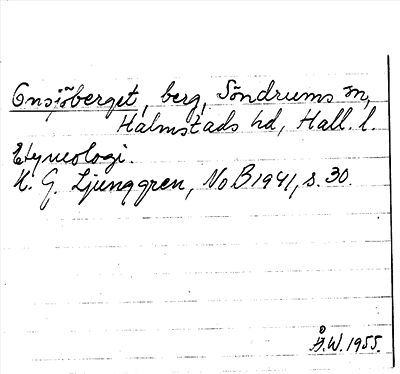 Onsjöberget, berg, Söndrums sn,
Halmstads hd, Hall. l.
Etymologi.
K. G. Ljunggren, NoB 1941, s. 30.
Å.W. 1955.